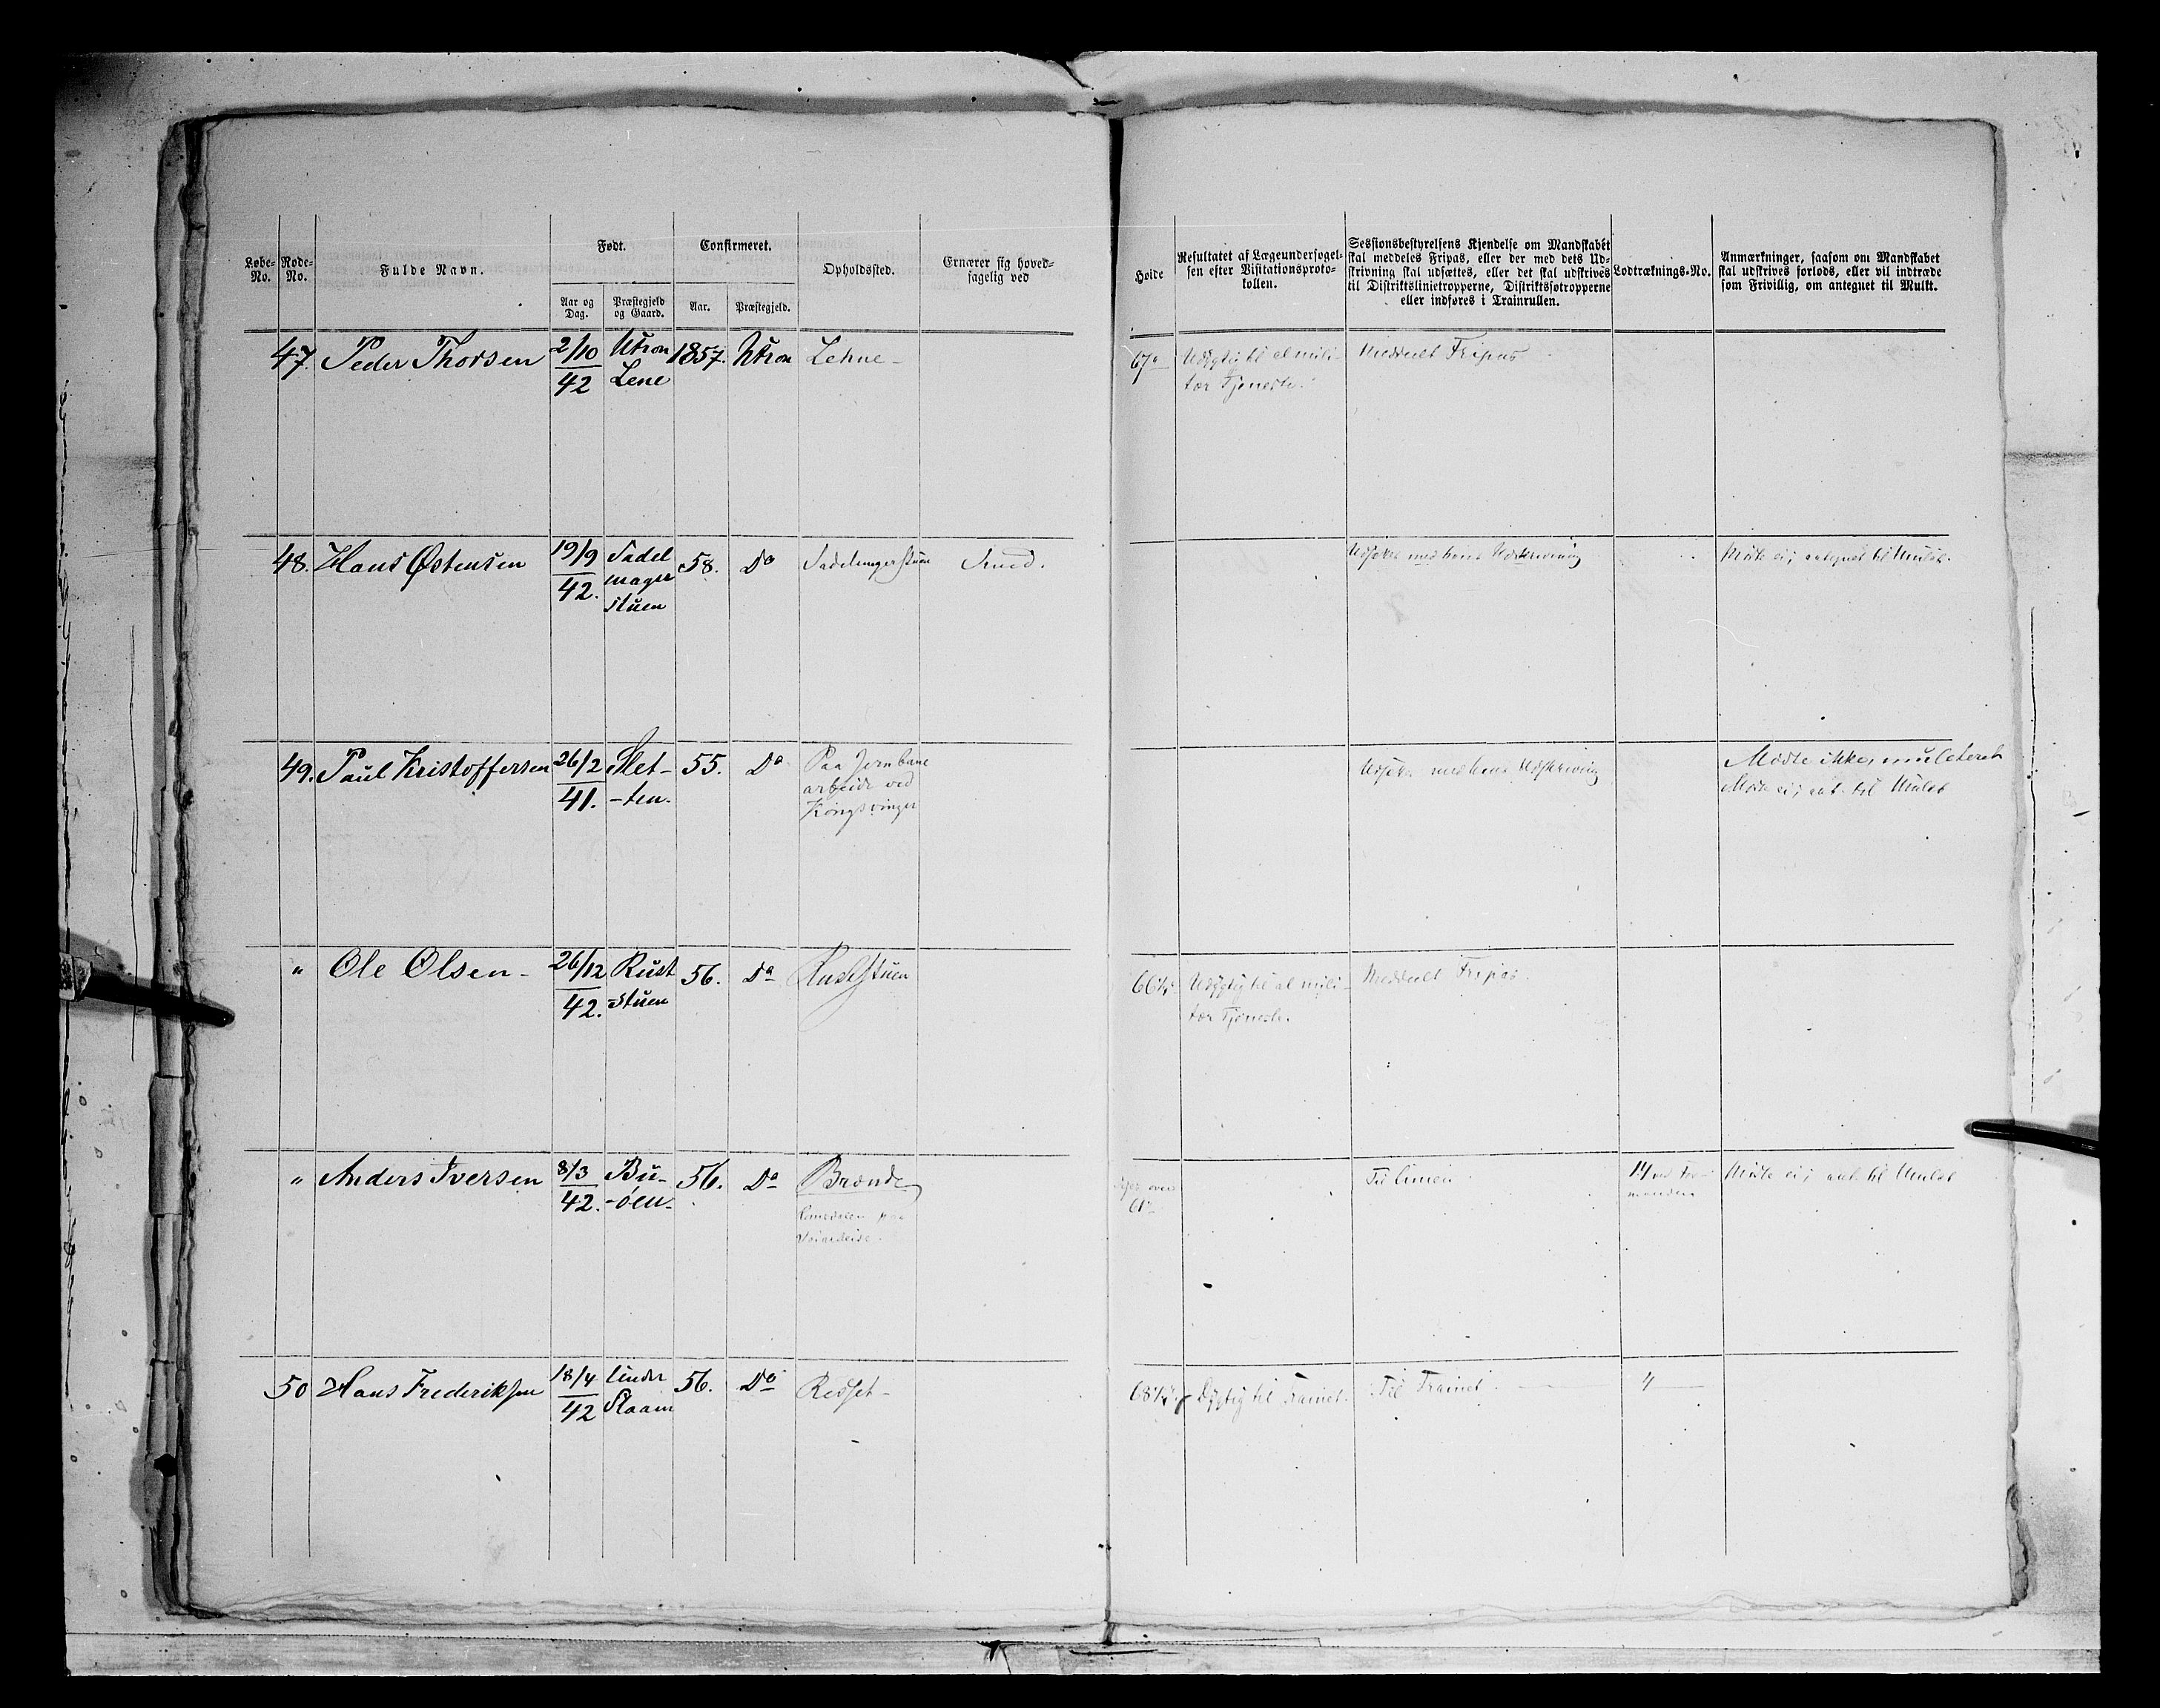 Løbe-
No.
Rode-
No.
Fulde Navn.
Født.
Aar og
Dag.
Præstegjeld
og Gaard.
Confirmeret.
Aar.
Præstegjeld.
Opholdssted.
Ernærer sig hoved-
sagelig ved
Høide
Resultatet af Lægeundersøgel-
sen efter Visitationsproto-
kollen.
Sessionsbestyrelsens Kjendelse om Mandskabet
skal meddeles Fripas, eller der med dets Ud-
skrivning skal udsættes, eller det skal udskrives
til Distriktslinietropperne, Distriktssøtropperne
eller indføres i Trainrullen.
Lodtræknings-No.
Anmærkninger, saasom om Mandskabet
skal udskrives forlods, eller vil indtræde
som Frivillig, om antegnet til Mulkt.
47. Peder Thorsen 2/10 Utron 1857. Utron Lehne-
42 Lene
67" Udygtig til al mili-
tær Tjeneste.
Meddeelt Fripas
48. Hans Østensen 19/9 Sadel 58. Do Sadelmagerstuen Smed.
42. mager
stuen
Udskrivning
Mødte ei; antegnet til Mulct.
49. Paul Kristoffersen 26/2 Slet- 55. Do Paa Jernbane
41. -ten. arbeide ved
Kongsvinger
Udskrivning
Mødte ikke, mulcteret
Mødte ei; ant. til Mulct
" Ole Olsen- 26/12 Rust 56. Do Ruststuen
42. stuen
66¼" Udygtig til al mili-
tær Tjeneste.
Meddeelt Fripas.
" Anders Iversen 8/3 Bu- 56. Do Brænde
42. -øen-
over
61"
Til Linien
14 ved For-
manden
Mødte ei; ant. til Mulct
50 Hans Frederiksen 18/4 under 56. Do Rødset-
42 Staam
Dygtig til Trainet. Til Trainet. 4